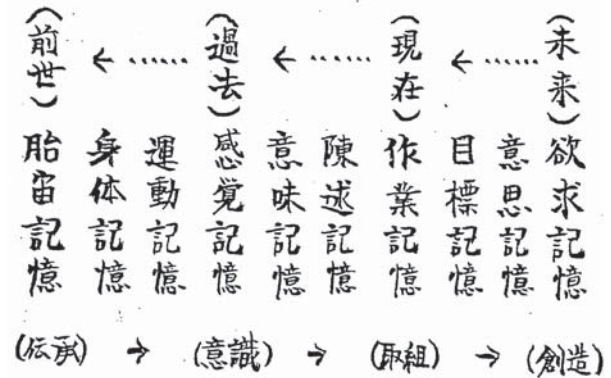 (未来)欲求記憶
……←
意思記憶
目標記憶
(現在)作業記憶
……←
陳述記憶
意味記憶
(過去)感覚記憶
……←
運動記憶
身体記憶
(前世)胎宙記憶
(伝承) → (意識) → (取組) → (創造)